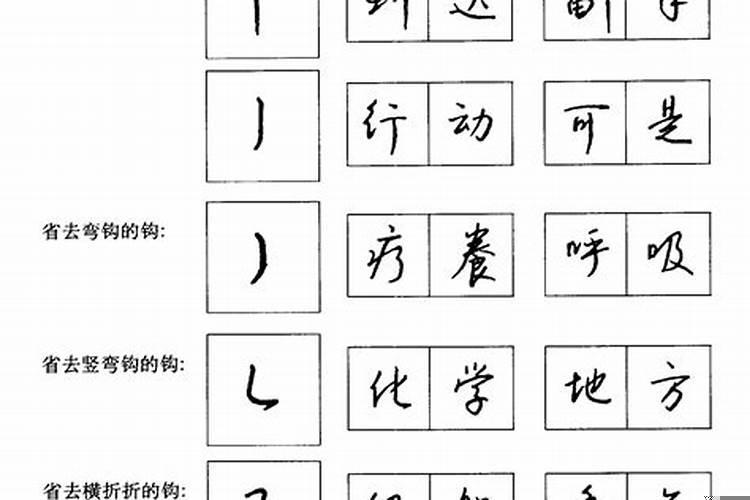 行动 可是
省去弯钩的钩: 疗养 呼吸
省去竖弯钩的钩: 化学 地方
省去横折折的钩: